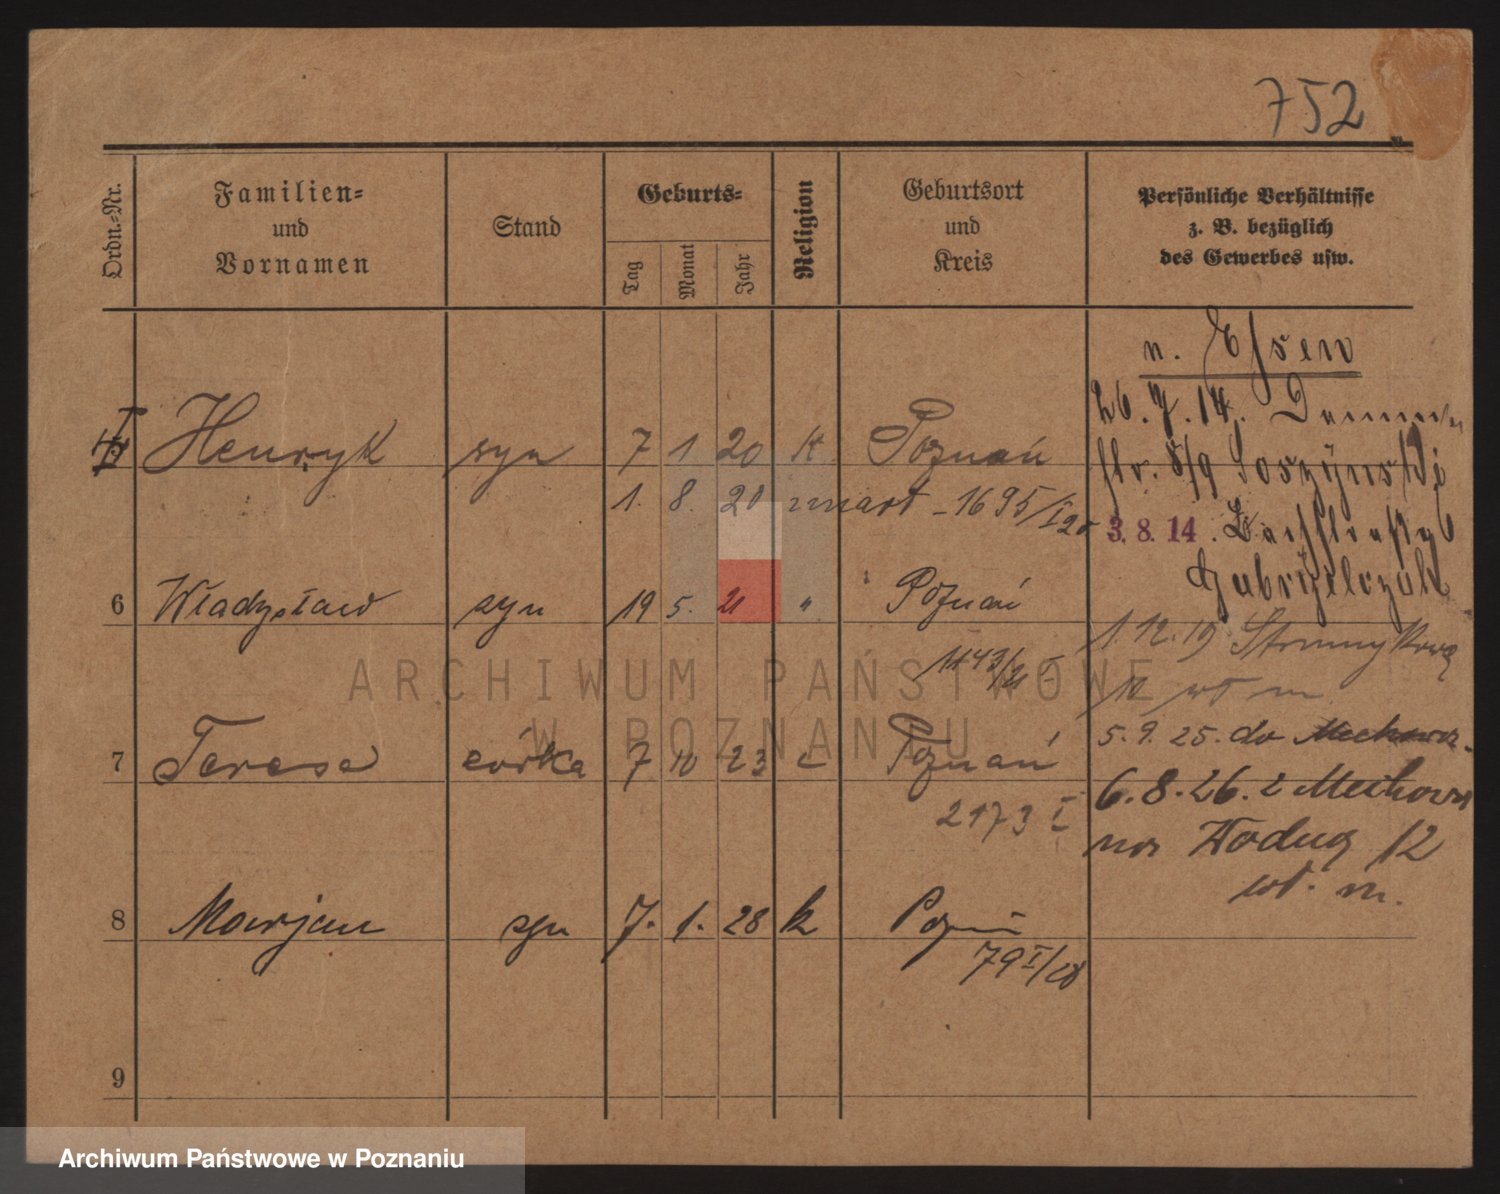 752
Ordn.-Nr.
Familien-
und
Vornamen
Stand
Geburts-
Tag
Monat
Jahr
Religion
Geburtsort
und
Kreis
Persönliche Verhältnisse
z. B. bezüglich
des Gewerbes usw.
n. Essen
26.7.14.
str. 8/9 Soszÿnski
3. 8. 14.
Gabryelczak
1.12.19
12 wł m
5.9.25. do
6.8.26. z
12
wł. m.
Henryk syn 7 1 20 k Poznań
1. 8. 20 zmarł - 1695/I 20
6 Władysław syn 19 5. 21 " Poznań
1143/21 I
7 Teresa córka 7 10 23 Poznań
2173 I
8 Marjan syn 7. 1. 28 k Pozn
79 I/28
9
ARCHIWUM PAŃSTWOWE
W POZNANIU
Archiwum Państwowe w Poznaniu